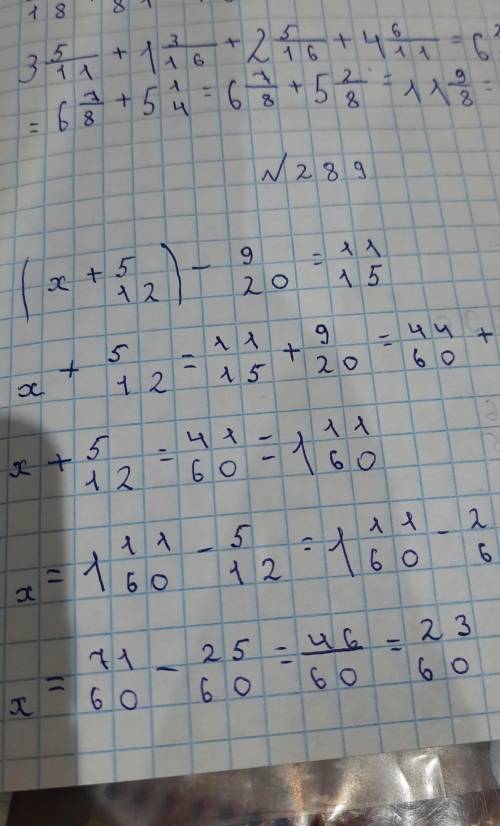 18 81
3 5/11 + 1 3/16 + 2 5/16 + 4 6/11 = 6
= 6 7/8 + 5 1/4 = 6 7/8 + 5 2/8 = 11 9/8 =
№289
(x + 5/12) - 9/20 = 11/15
x + 5/12 = 11/15 + 9/20 = 44/60 +
x + 5/12 = 41/60 = 1 11/60
x = 1 11/60 - 5/12 = 1 11/60 - 2/6
x = 71/60 - 25/60 = 46/60 = 23/60